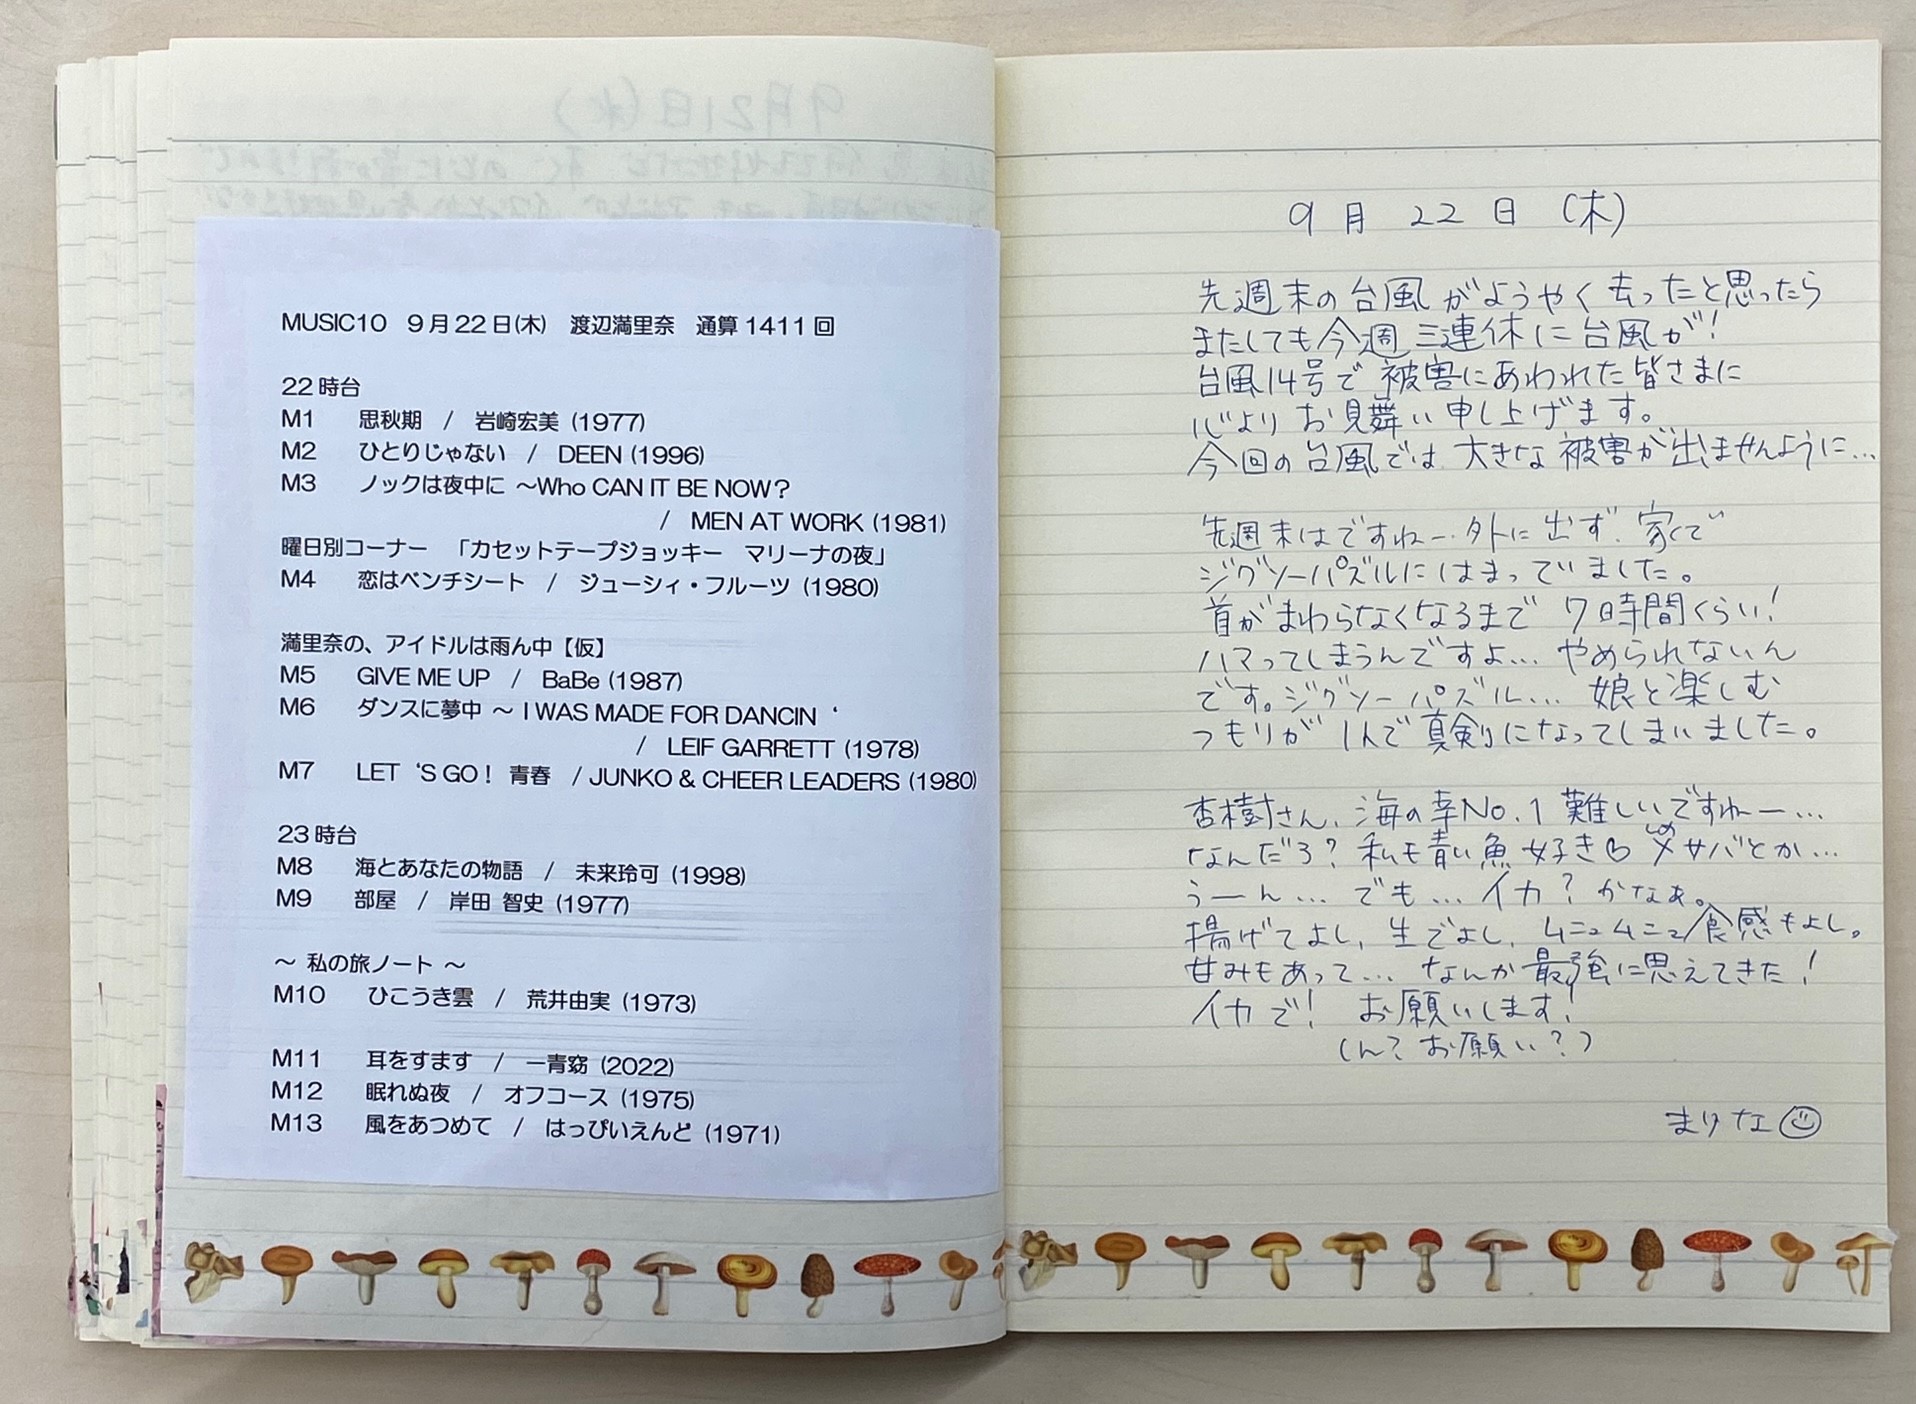 9月21日(水)
MUSIC10　9月22日(木)　渡辺満里奈　通算1411回
22時台
M1　思秋期　/　岩崎宏美 (1977)
M2　ひとりじゃない　/　DEEN (1996)
M3　ノックは夜中に ～Who CAN IT BE NOW？
/　MEN AT WORK (1981)
曜日別コーナー　「カセットテープジョッキー　マリーナの夜」
M4　恋はベンチシート　/　ジューシィ・フルーツ (1980)
満里奈の、アイドルは雨ん中【仮】
M5　GIVE ME UP　/　BaBe (1987)
M6　ダンスに夢中 ～ I WAS MADE FOR DANCIN ‘
/　LEIF GARRETT (1978)
M7　LET ‘S GO！ 青春　/ JUNKO & CHEER LEADERS (1980)
23時台
M8　海とあなたの物語　/　未来玲可 (1998)
M9　部屋　/　岸田 智史 (1977)
～ 私の旅ノート ～
M10　ひこうき雲　/　荒井由実 (1973)
M11　耳をすます　/　一青窈 (2022)
M12　眠れぬ夜　/　オフコース (1975)
M13　風をあつめて　/　はっぴいえんど (1971)
9月22日(木)
先週末の台風がようやく去ったと思ったら
またしても今週三連休に台風が!
台風14号で被害にあわれた皆さまに
心よりお見舞い申し上げます。
今回の台風では大きな被害が出ませんように…
先週末はですねー、外に出ず、家で
ジグソーパズルにはまっていました。
首がまわらなくなるまで7時間くらい!
ハマってしまうんですよ…やめられないん
です。ジグソーパズル…娘と楽しむ
つもりが1人で真剣になってしまいました。
杏樹さん、海の幸No.1難しいですねー…
なんだろ?私も青い魚好き♡〆サバとか…
うーん…でも…イカ?かなぁ。
揚げてよし、生でよし、ムニュムニュ食感もよし。
甘みもあって…なんか最強に思えてきた!
イカで!お願いします!
(ん?お願い?)
まりな☺